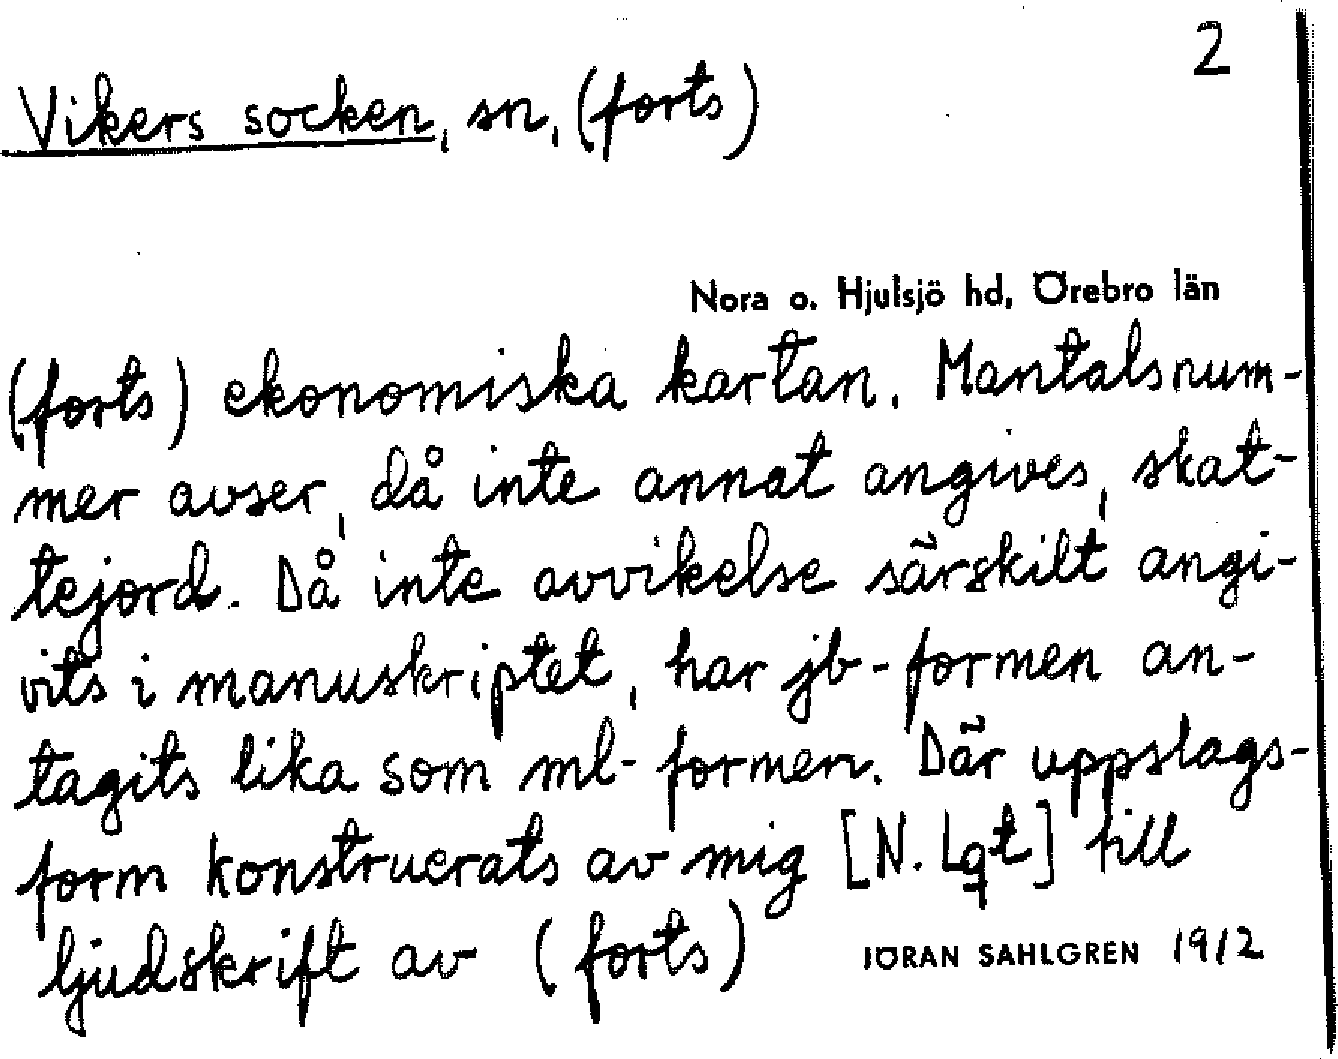 2
Vikers socken, sn, (forts)
Nora o. Hjulsjö hd, Örebro län
(forts) ekonomiska kartan. Mantalsnum-
mer avser, då inte annat angives, skat-
tejord. Då inte avvikelse särskilt angi-
vits i manuskriptet, har jb-formen an-
tagits lika som ml-formen. Där uppslags-
form konstruerats av mig [N. Lqt] till
ljudskrift av (forts)
JÖRAN SAHLGREN 1912